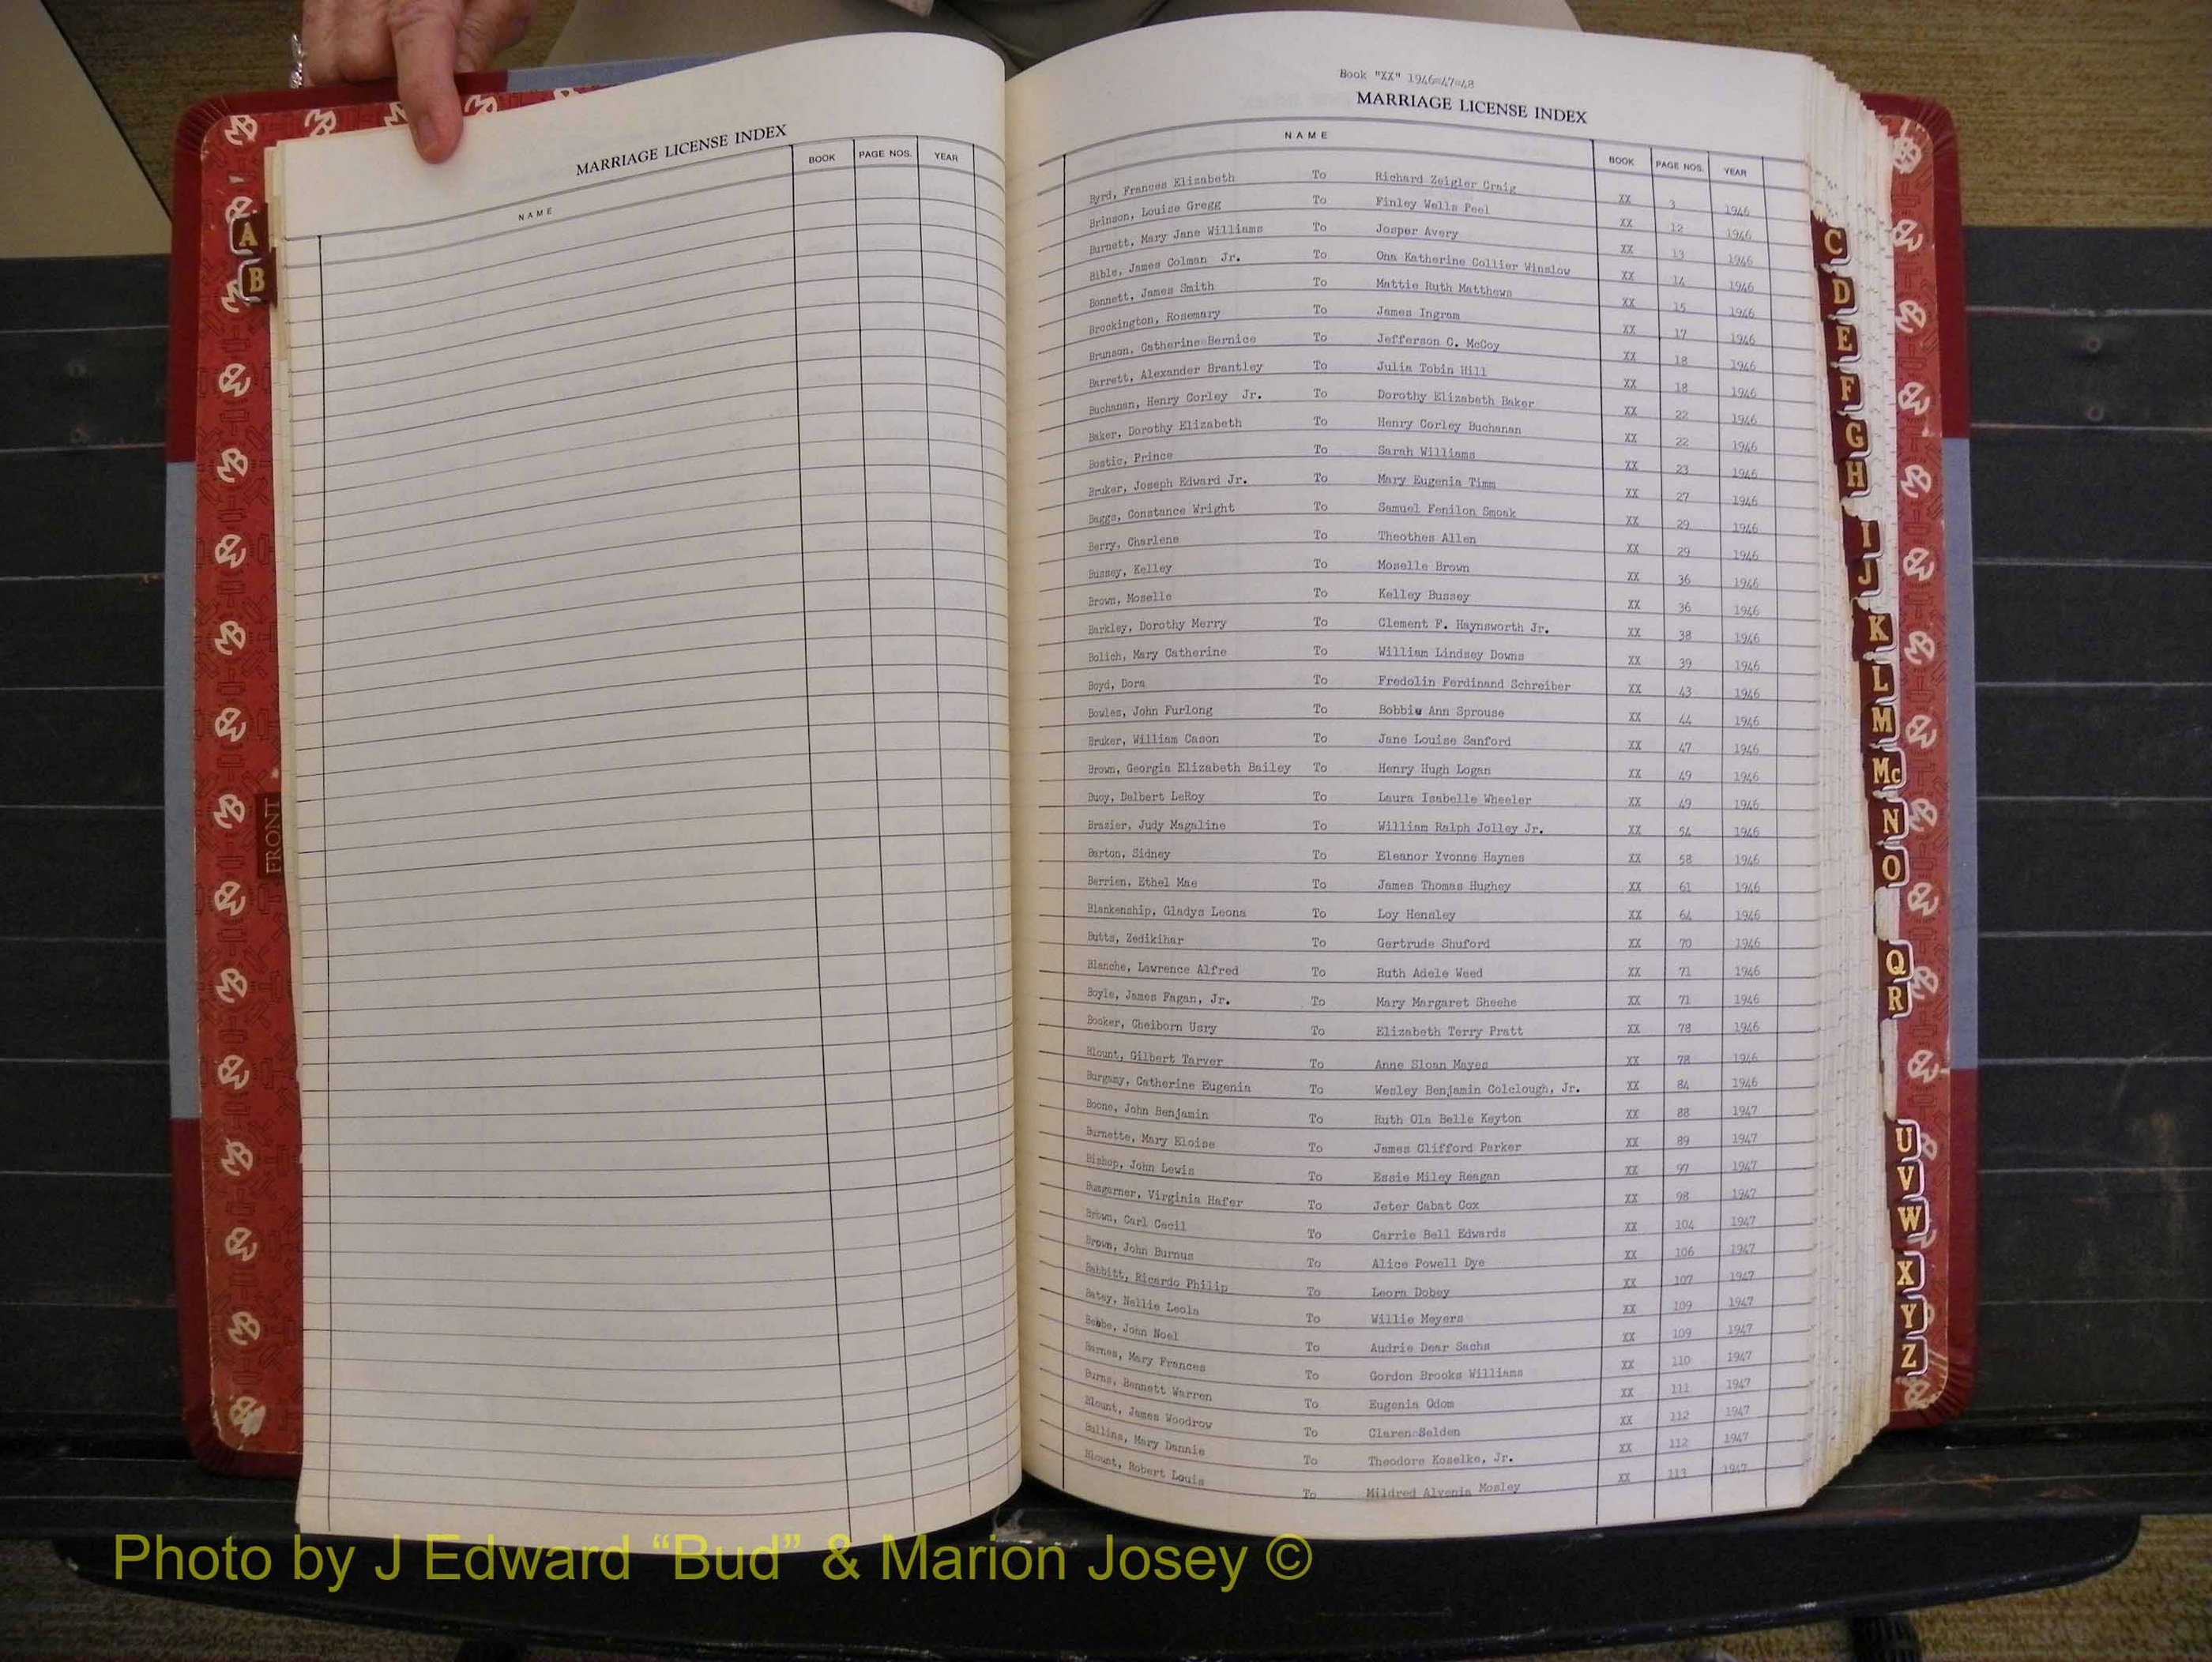 MARRIAGE LICENSE INDEX
NAME BOOK PAGE NOS. YEAR
A
B
FRONT
Book "XX" 1946=47=48
MARRIAGE LICENSE INDEX
NAME BOOK PAGE NOS. YEAR
Byrd, Frances Elizabeth To Richard Zeigler Craig XX 3 1946
Brinson, Louise Gregg To Finley Wells Peel XX 12 1946
Burnett, Mary Jane Williams To Josper Avery XX 13 1946
Bible, James Colman Jr. To Ona Katherine Collier Winslow XX 14 1946
Bonnett, James Smith To Mattie Ruth Matthews XX 15 1946
Brockington, Rosemary To James Ingram XX 17 1946
Brunson, Catherine Bernice To Jefferson C. McCoy XX 18 1946
Barrett, Alexander Brantley To Julia Tobin Hill XX 18 1946
Buchanan, Henry Corley Jr. To Dorothy Elizabeth Baker XX 22 1946
Baker, Dorothy Elizabeth To Henry Corley Buchanan XX 22 1946
Bostic, Prince To Sarah Williams XX 23 1946
Bruker, Joseph Edward Jr. To Mary Eugenia Timm XX 27 1946
Baggs, Constance Wright To Samuel Fenilon Smoak XX 29 1946
Berry, Charlene To Theothes Allen XX 29 1946
Bussey, Kelley To Moselle Brown XX 36 1946
Brown, Moselle To Kelley Bussey XX 36 1946
Barkley, Dorothy Merry To Clement F. Haynsworth Jr. XX 38 1946
Bolich, Mary Catherine To William Lindsey Downs XX 39 1946
Boyd, Dora To Fredolin Ferdinand Schreiber XX 43 1946
Bowles, John Furlong To Bobbie Ann Sprouse XX 44 1946
Bruker, William Cason To Jane Louise Sanford XX 47 1946
Brown, Georgia Elizabeth Bailey To Henry Hugh Logan XX 49 1946
Buoy, Delbert LeRoy To Laura Isabelle Wheeler XX 49 1946
Brazier, Judy Magaline To William Ralph Jolley Jr. XX 54 1946
Barton, Sidney To Eleanor Yvonne Haynes XX 58 1946
Berrien, Ethel Mae To James Thomas Hughey XX 61 1946
Blankenship, Gladys Leona To Loy Hensley XX 64 1946
Butts, Zedikihar To Gertrude Shuford XX 70 1946
Blanche, Lawrence Alfred To Ruth Adele Weed XX 71 1946
Boyle, James Fagan, Jr. To Mary Margaret Sheehe XX 71 1946
Booker, Cheiborn Usry To Elizabeth Terry Pratt XX 78 1946
Blount, Gilbert Tarver To Anne Sloan Mayes XX 78 1946
Burgamy, Catherine Eugenia To Wesley Benjamin Colclough, Jr. XX 84 1946
Boone, John Benjamin To Ruth Ola Belle Keyton XX 88 1947
Burnette, Mary Eloise To James Clifford Parker XX 89 1947
Bishop, John Lewis To Essie Miley Reagan XX 97 1947
Bumgarner, Virginia Hafer To Jeter Cabat Cox XX 98 1947
Brown, Carl Cecil To Carrie Bell Edwards XX 104 1947
Brown, John Burnus To Alice Powell Dye XX 106 1947
Babbitt, Ricardo Philip To Leora Dobey XX 107 1947
Batey, Nellie Leola To Willie Meyers XX 109 1947
Beebe, John Noel To Audrie Dear Sachs XX 109 1947
Barnes, Mary Frances To Gordon Brooks Williams XX 110 1947
Burns, Bennett Warren To Eugenia Odom XX 111 1947
Blount, James Woodrow To Claren Selden XX 112 1947
Bullins, Mary Dannie To Theodore Koselke, Jr. XX 112 1947
Blount, Robert Louis To Mildred Alvenia Mosley XX 113 1947
C
D
E
F
G
H
I
J
K
L
M
Mc
N
O
Q
R
U
V
W
X
Y
Z
Photo by J Edward “Bud” & Marion Josey ©